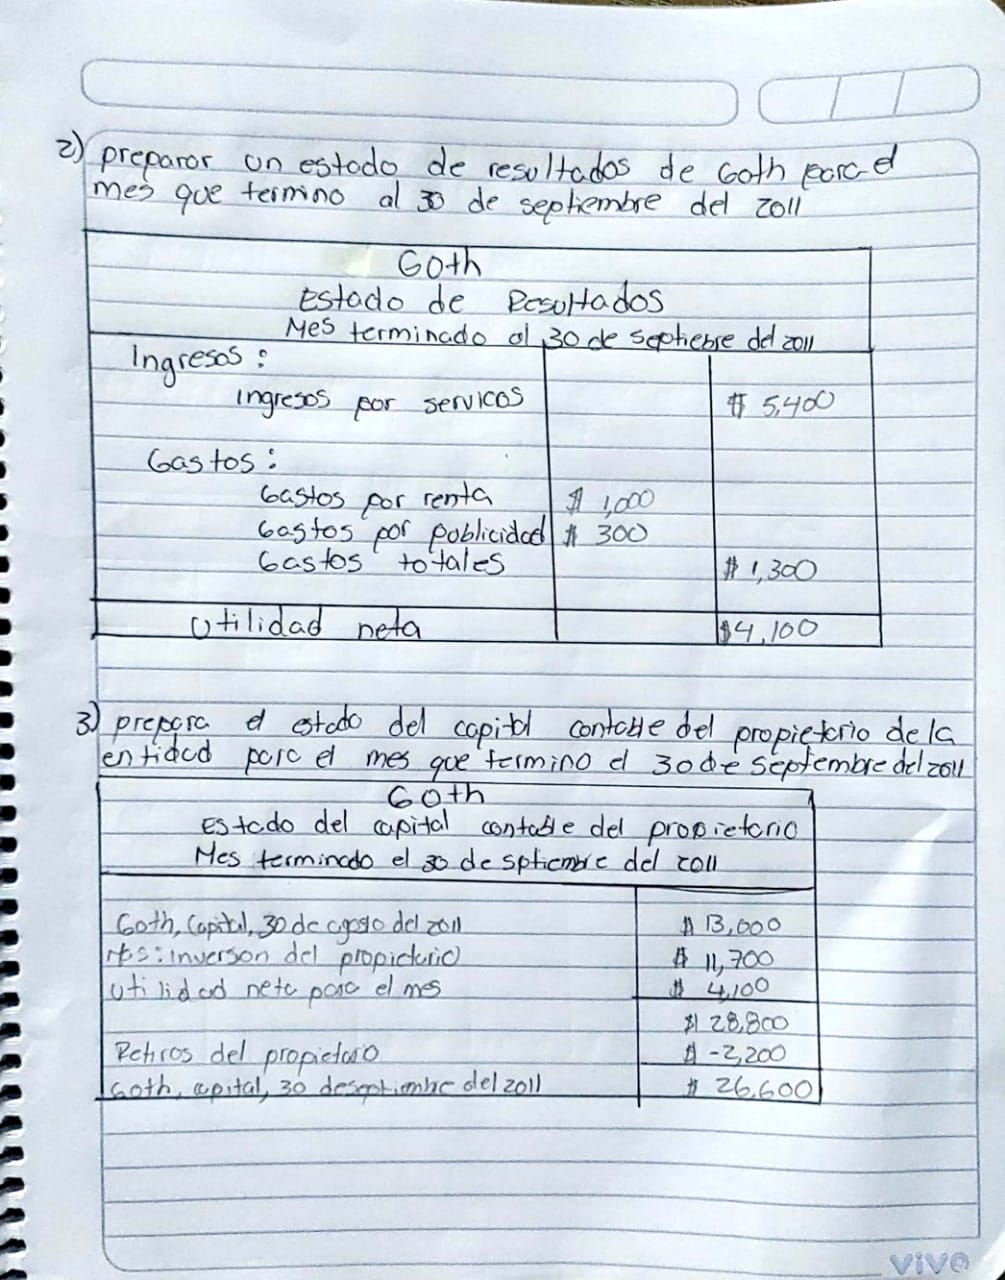 2) preparar un estado de resultados de Goth para el
mes que termino al 30 de septiembre del 2011
Goth
Estado de Resultados
Mes terminado al 30 de septiebre del 2011
Ingresos:
ingresos por servicos $ 5,400
Gastos:
Gastos por renta $ 1,000
Gastos por publicidad $ 300
Gastos totales $ 1,300
Utilidad neta $4,100
3) prepara el estado del capital contable del propietario de la
entidad para el mes que termino el 30 de septembre del 2011
Goth
Estado del capital contable del propietario
Mes terminado el 30 de sptiembre del 2011
Goth, Capital, 30 de agosto del 2011 $ 13,000
mas: inverson del propietario $ 11,700
utilidad neta para el mes $ 4,100
$ 28,800
Retiros del propietario $ -2,200
Goth, capital, 30 de septiembre del 2011 $ 26,600
vivo